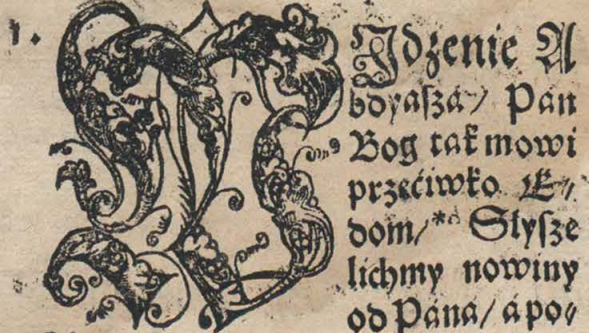 1. WJdzenie A
bdyaſzá/ Pan
Bog ták mowi
przećiwko E⸗
dom/*a Slyſze
lichmy nowiny
od Páná/ á po⸗